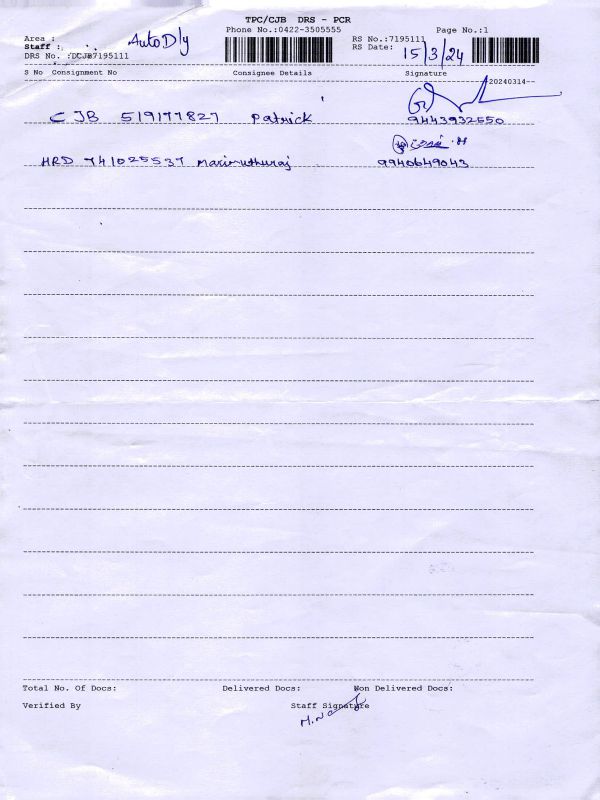 TPC/CJB DRS - PCR
Phone No.:0422-3505555 Page No.:1
Area : RS No.:7195111
Staff : AutoDly RS Date: 15/3/24
DRS No. :DCJB7195111
S No Consignment No Consignee Details Signature
20240314
CJB 519177827 Patrick 9443932550
HRD 741025537 Marimuthuraj 9940649043
Total No. Of Docs: Delivered Docs: Non Delivered Docs:
Verified By Staff Signature